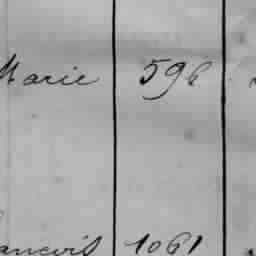 Marie 596
ancois 1061